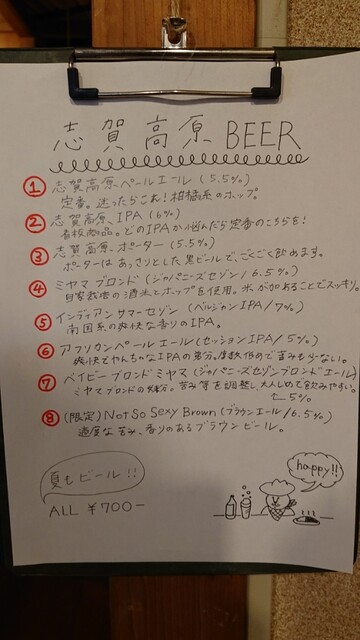 志賀高原 BEER
① 志賀高原ペールエール (5.5%)
定番。迷ったらこれ! 柑橘系のホップ。
② 志賀高原 IPA (6%)
看板商品。どのIPAか悩んだら定番のこちらを!
③ 志賀高原 ポーター (5.5%)
ポーターはあっさりとした黒ビールで、ごくごく飲めます。
④ ミヤマブロンド (ジャパニーズセゾン/6.5%)
自家栽培の酒米とホップを使用。米が加わることでスッキリ。
⑤ インディアンサマーセゾン (ベルジャンIPA/7%)
南国系の爽快な香りのIPA。
⑥ アフリカンペールエール (セッションIPA/5%)
爽快でやんちゃなIPAの弟分。度数低めで苦みも少ない。
⑦ ベイビーブロンドミヤマ (ジャパニーズセゾンブロンドエール)
ミヤマブロンドの妹分。苦み等を調整し大人しめで飲みやすい。
↑5%
⑧ (限定) Not So Sexy Brown (ブラウンエール/6.5%)
適度な苦み、香りのあるブラウンビール。
夏もビール!!
ALL ¥700-
happy!!